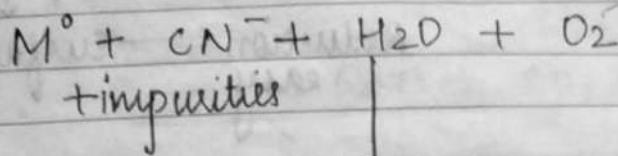 M° + CN⁻ + H2O + O2
+impurities